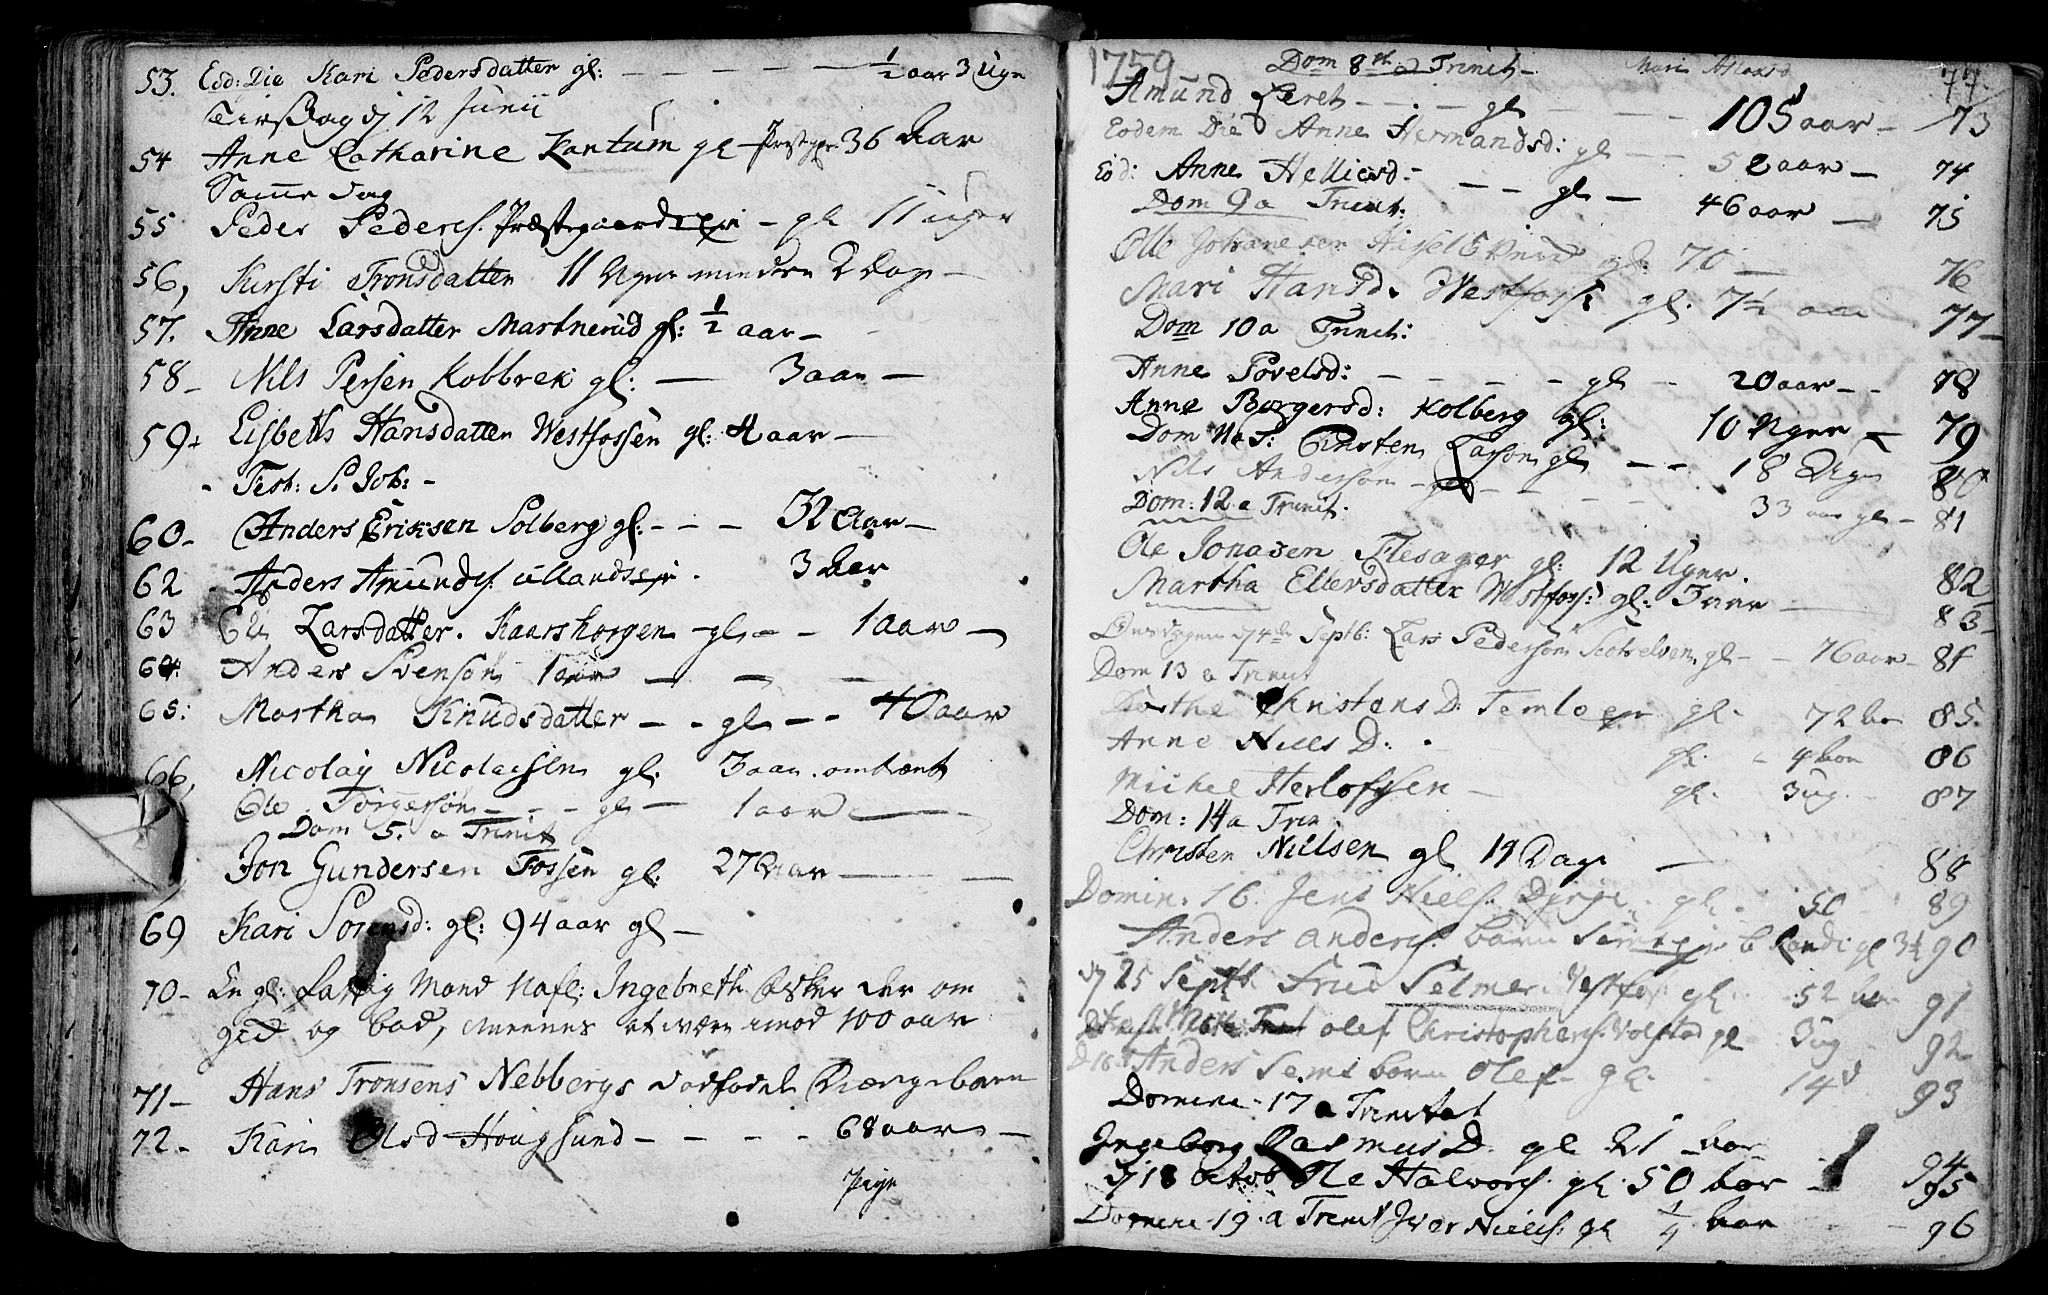 53. Eod: Die Kari Pedersdatter gl: — — — ½ aar 3 Uge
Tirsdag dj 12 Junii
54 Anne Catharine Kantum gl 36 Aar
Samme Dag
55 Peder Peders. Præstegaardseje — gl 11 uger
56, Kirsti Tronsdatter 11 Uger mindre 2 Dag —
57. Anne Larsdatter Martnerud gl: ½ aar —
58 — Nils Persen Kobbrek gl: — 3 aar —
59 Lisbeth Hansdatter Westfossen gl: 4 aar —
Fest: S. Joh: —
60 — Anders Eriksen Solberg gl: — — — 32 Aar —
62 Anders Amunds. Ullandseje. 3 Aar
63 Larsdatter. Kaarshorgen — gl — — 1 aar —
64: Anders Svenson 1 aar — — —
65: Martha Knudsdatter — — gl — — 40 aar
66, Nicolay Nicolaisen gl: 3 aar. omtrent
Ole Torgerson — — — gl — 1 aar —
Dom 5. a Trinit
Jon Gundersen Fossen gl: 27 Aar — —
69 Kari Sorensd: gl: 94 aar gl —
70 — En gl: fattig Mand Nafl: Ingebreth Asker der om
gik og bad, meenes at være imod 100 aar
71 — Hans Tronsens Nebbergs dødfødt Drængebarn
72 — Kari Olsd Hougsund — — — — 68 aar —
Pige
1759 Dom 8de a Trinit — Mari 77
Amund Leret — — — gl — — 105 aar — 73
Eodem Die Anne Hermandsd: gl — — 52 aar — 74
Eod: Anne Helliesd — — — gl — 46 aar — 75
Dom 9 a Trinit:
Olle Johanesen gl: 70 — 76
Mari Hansd. Westfoss: gl. 7½ aar 77 —
Dom 10 a Trinit:
Anne Povelsd: — — — — gl — 20 aar — — 78
Anne Borgersd: Kolberg gl: 10 Uger — 79
Dom 11 a T: Christen Larson gl — — 18 Uger 80
Nils Anderson — — — — 33 aar gl — 81
Dom: 12 a Trinit.
Ole Jonasen Flesager gl: 12 Uger. 82
Martha Ellersdatter Westfoss: gl: 3 aar — 83 —
Onsdagen d 4de Septb: Lars Pederson Scotselven gl — — 76 aar — 84
Dom 13 a Trinit
Dorthe Christens D. Temloeje gl. 72 aar 85.
Anne Niels D: . gl. 4 aar 86
Michel Herlofssen — gl. 3 ug. 87
Dom: 14 a Trin.
Christen Nielsen gl 19 Dage — 88
Domin. 16. Jens Niels. gl. 50 — 89
Anders Anders. barn gl 3¼ 90
dj 25 Septb Frue Selmer Vestfos: gl. 52 aar 91
Olef Christophers. Wolstad gl — 3 ug — 92
D 18 Anders Sems barn Olef — gl. 14 d 93
Domin. 17 a Trinitat
Ingeborg Rasmus D. gl 21 Aar — 94
dj 18 octob Ole Halvors. gl. 50 Aar — 95
Domin. 19. a Trinit Iver Niels. gl ¼ Aar — 96